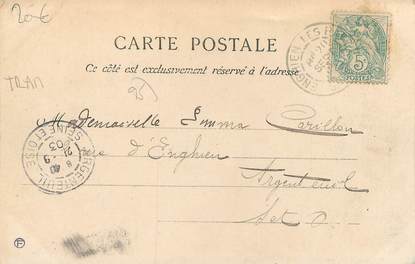 20€
CARTE POSTALE
Ce côté est exclusivement réservé à l'adresse
TRAM
95
Mademoiselle Emma Carillon
Rue d'Enghien
Argenteuil
S et O
ENGHIEN LES B
5
POSTES
ARGENTEUIL
8 40
21-9
03
SEINE ET OISE
F